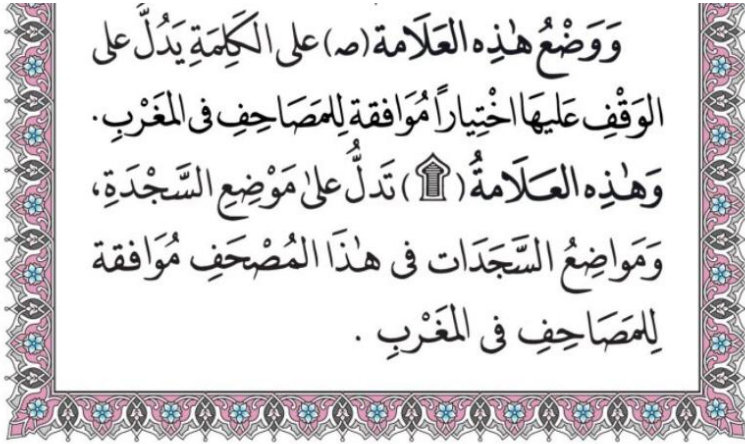 وَوَضْعُ هٰذِه العَلَامة (صـ) على الكَلِمَةِ يَدُلُّ على
الوَقْفِ عَليهَا اخْتِيَاراً مُوَافقة لِلمَصَاحِفِ فى المَغْرْبِ.
وَهٰذِه العَلَامةُ (۩) تَدلُّ علىٰ مَوْضِعِ السَّجْدَةِ،
وَمَواضِعُ السَّجَدَات فى هٰذَا المُصْحَفِ مُوَافقة
لِلمَصَاحِفِ فى المَغْرْبِ .